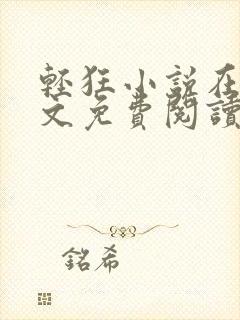 輕狂小說在
文免費閱讀
銘希